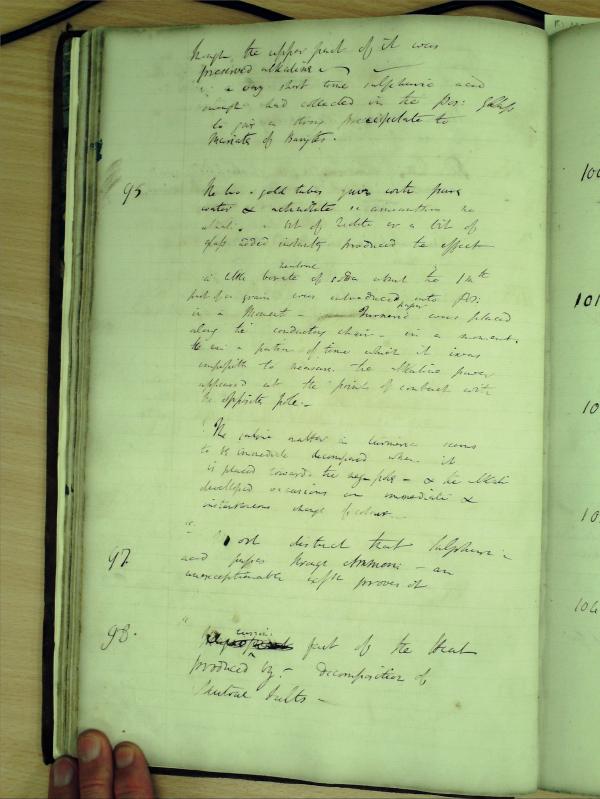 though the upper part of it was
preserved alkaline
in a very short time sulphuric acid
enough had collected in the Pos: Glass
to give a strong precipitate to
Muriate of Barytes.
95 The two gold tubes gave with pure
water & asbestos or amianthus no
alkali. a bit of or a bit of
glass added instantly produced the effect
neutral
a little borate of soda about the 1 mth
part of a grain was introduced into Pos:
paper
in a moment - Turmeric was placed
along the conducting chain - in a moment.
the in a portion of time which it was
impossible to measure the alkaline power
appeared at the points of contact with
the opposite pole -
The saline matter in turmeric seems
to be immediately decomposed when it
is placed towards the neg pole - & the alkali
developed occasions an immediate &
instantaneous change of colour
97. distinct that Sulphuric
acid passes through Ammonia - an
unexceptionable proves it
98.
part of the Heat
produced by - decomposition of
Neutral Salts -
100
101
10
10
104